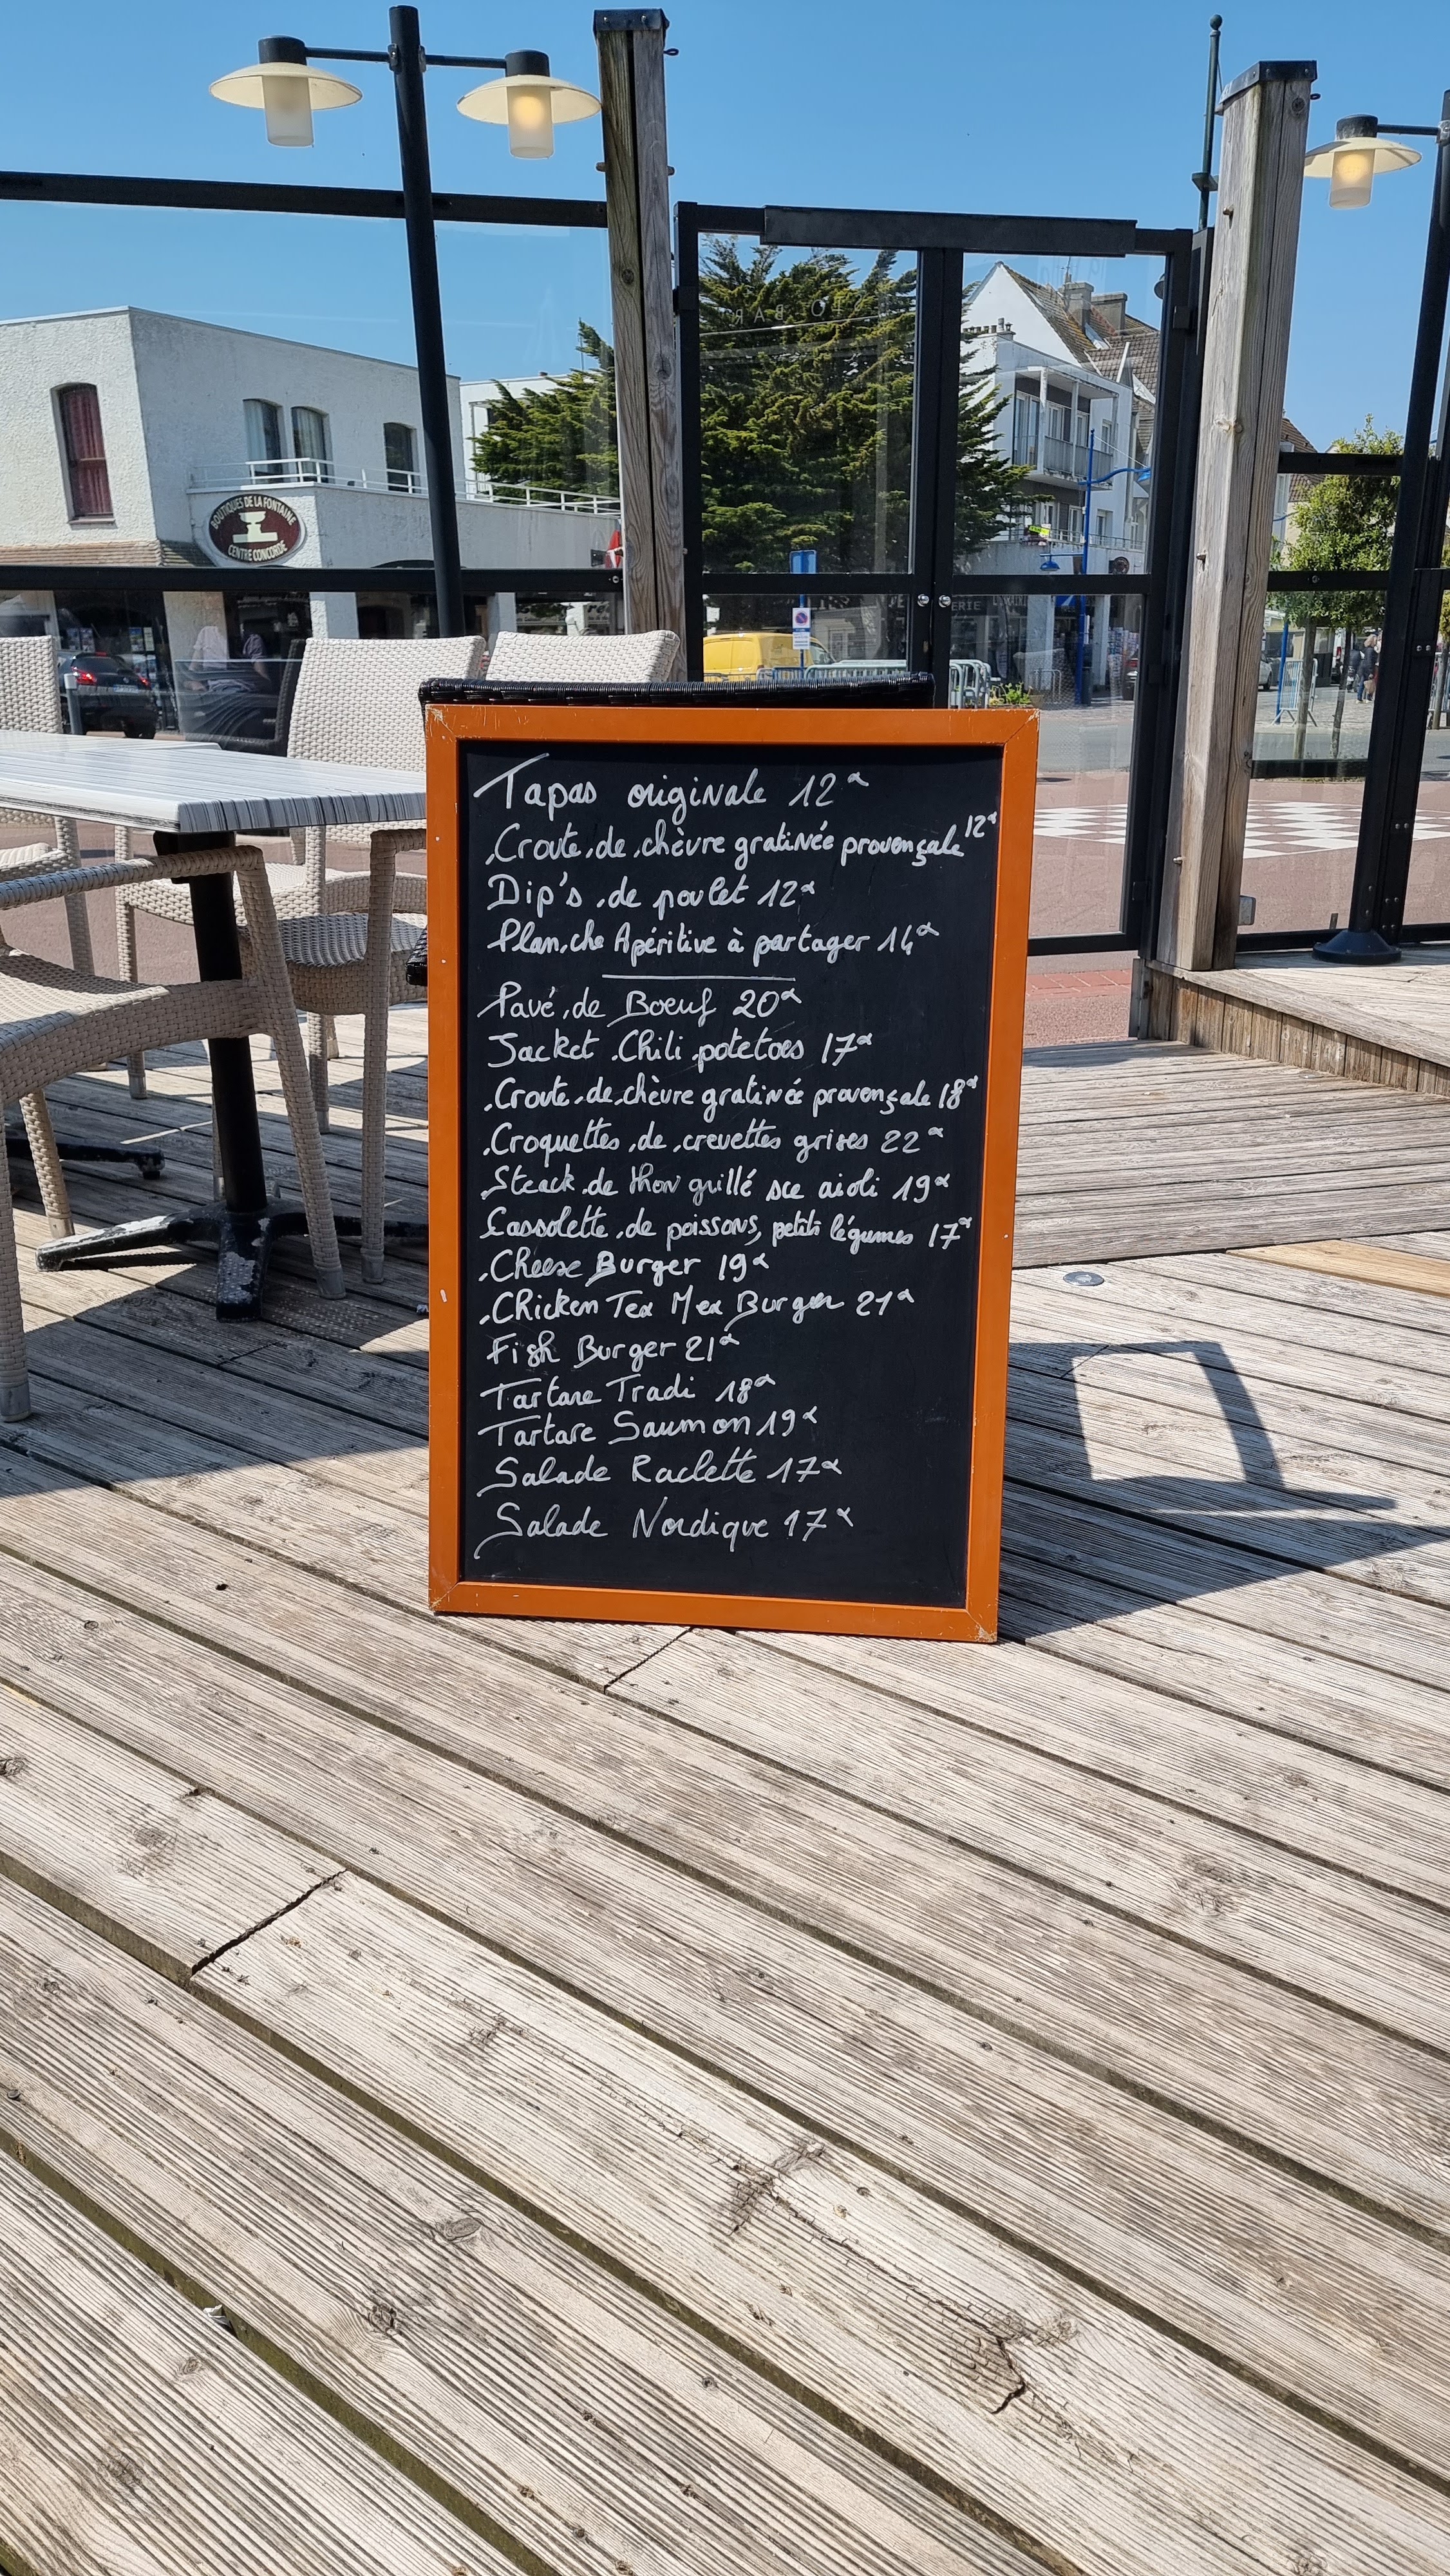 BOUTIQUES DE LA FONTAINE
CENTRE CONCORDE
Tapas originale 12€
Croute de chèvre gratinée provençale 12€
Dip's de poulet 12€
Planche Apéritive à partager 14€
Pavé de Boeuf 20€
Jacket Chili potetoes 17€
Croute de chèvre gratinée provençale 18€
Croquettes de crevettes grises 22€
Steack de thon grillé sce aioli 19€
Cassolette de poissons, petits légumes 17€
Cheese Burger 19€
Chicken Tex Mex Burger 21€
Fish Burger 21€
Tartare Tradi 18€
Tartare Saumon 19€
Salade Raclette 17€
Salade Nordique 17€